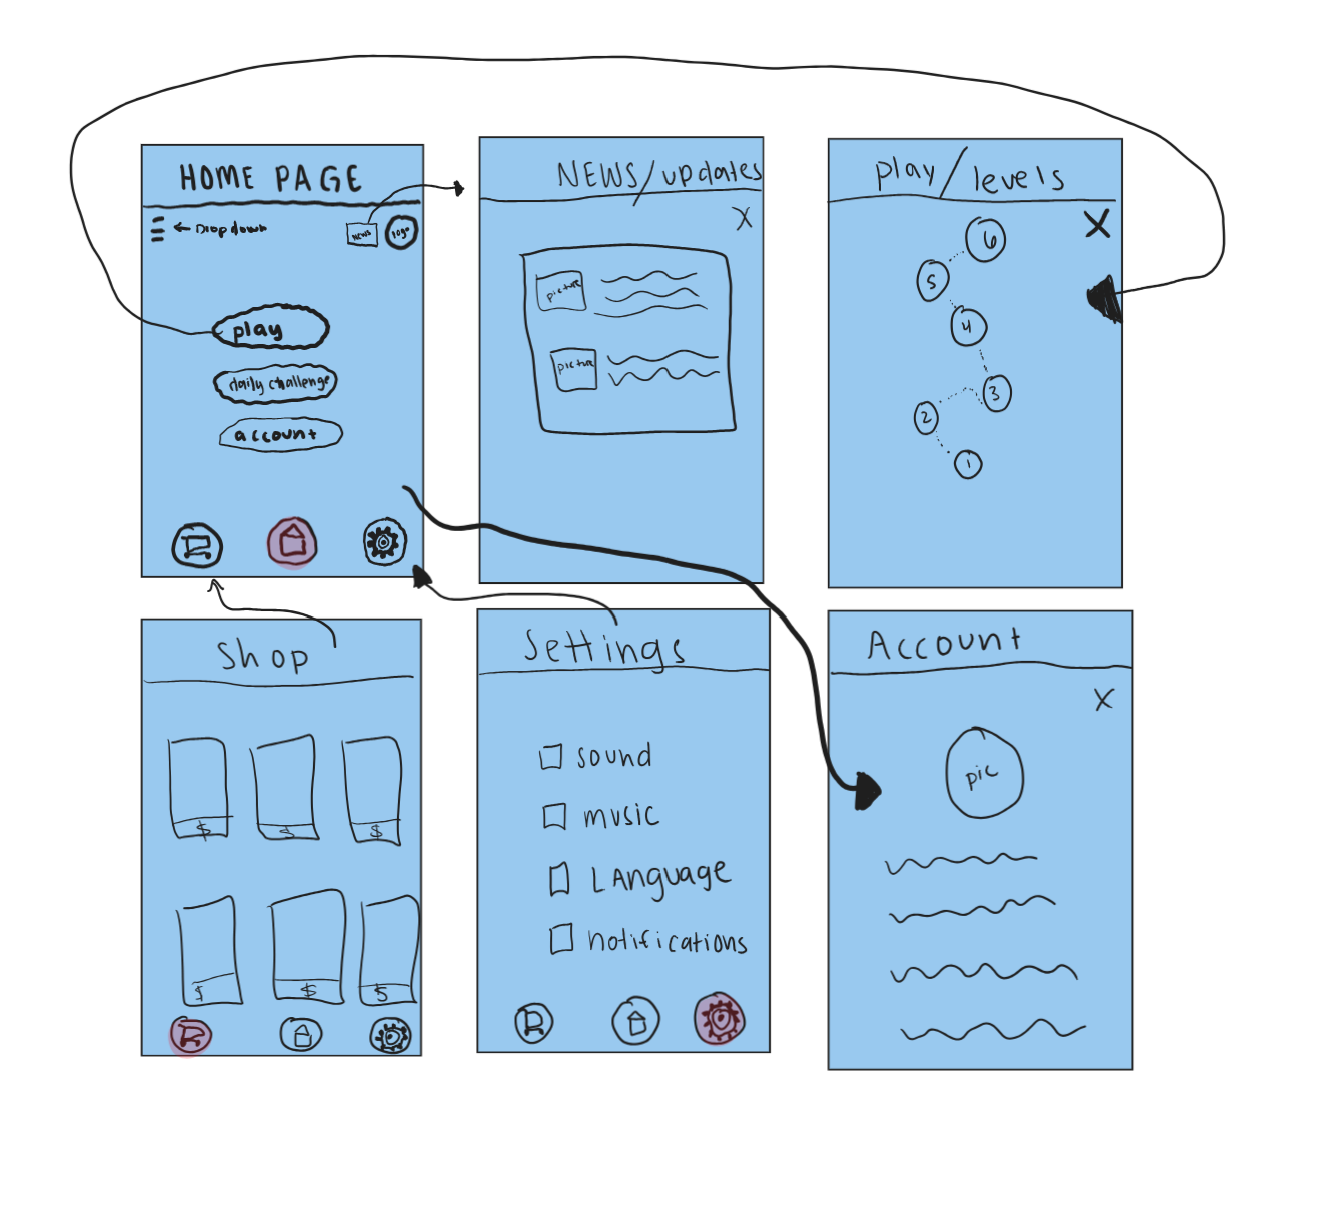 HOME PAGE
← Dropdown
NEWS
logo
play
daily challenge
account
NEWS/updates
X
picture
picture
play/levels
X
6
5
4
3
2
1
Shop
$
$
$
$
$
$
Settings
sound
music
LANguage
notifications
Account
X
pic